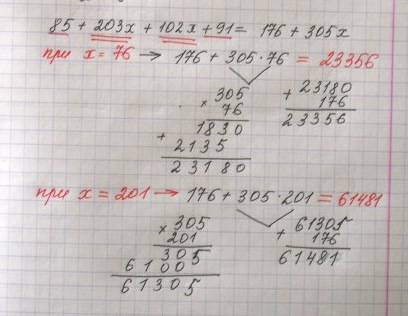 85 + 203x + 102x + 91 = 176 + 305x
при x = 76 → 176 + 305·76 = 23356
× 305
76
+ 1830
2135
23180
+ 23180
176
23356
при x = 201 → 176 + 305·201 = 61481
× 305
201
305
61005
61305
+ 61305
176
61481